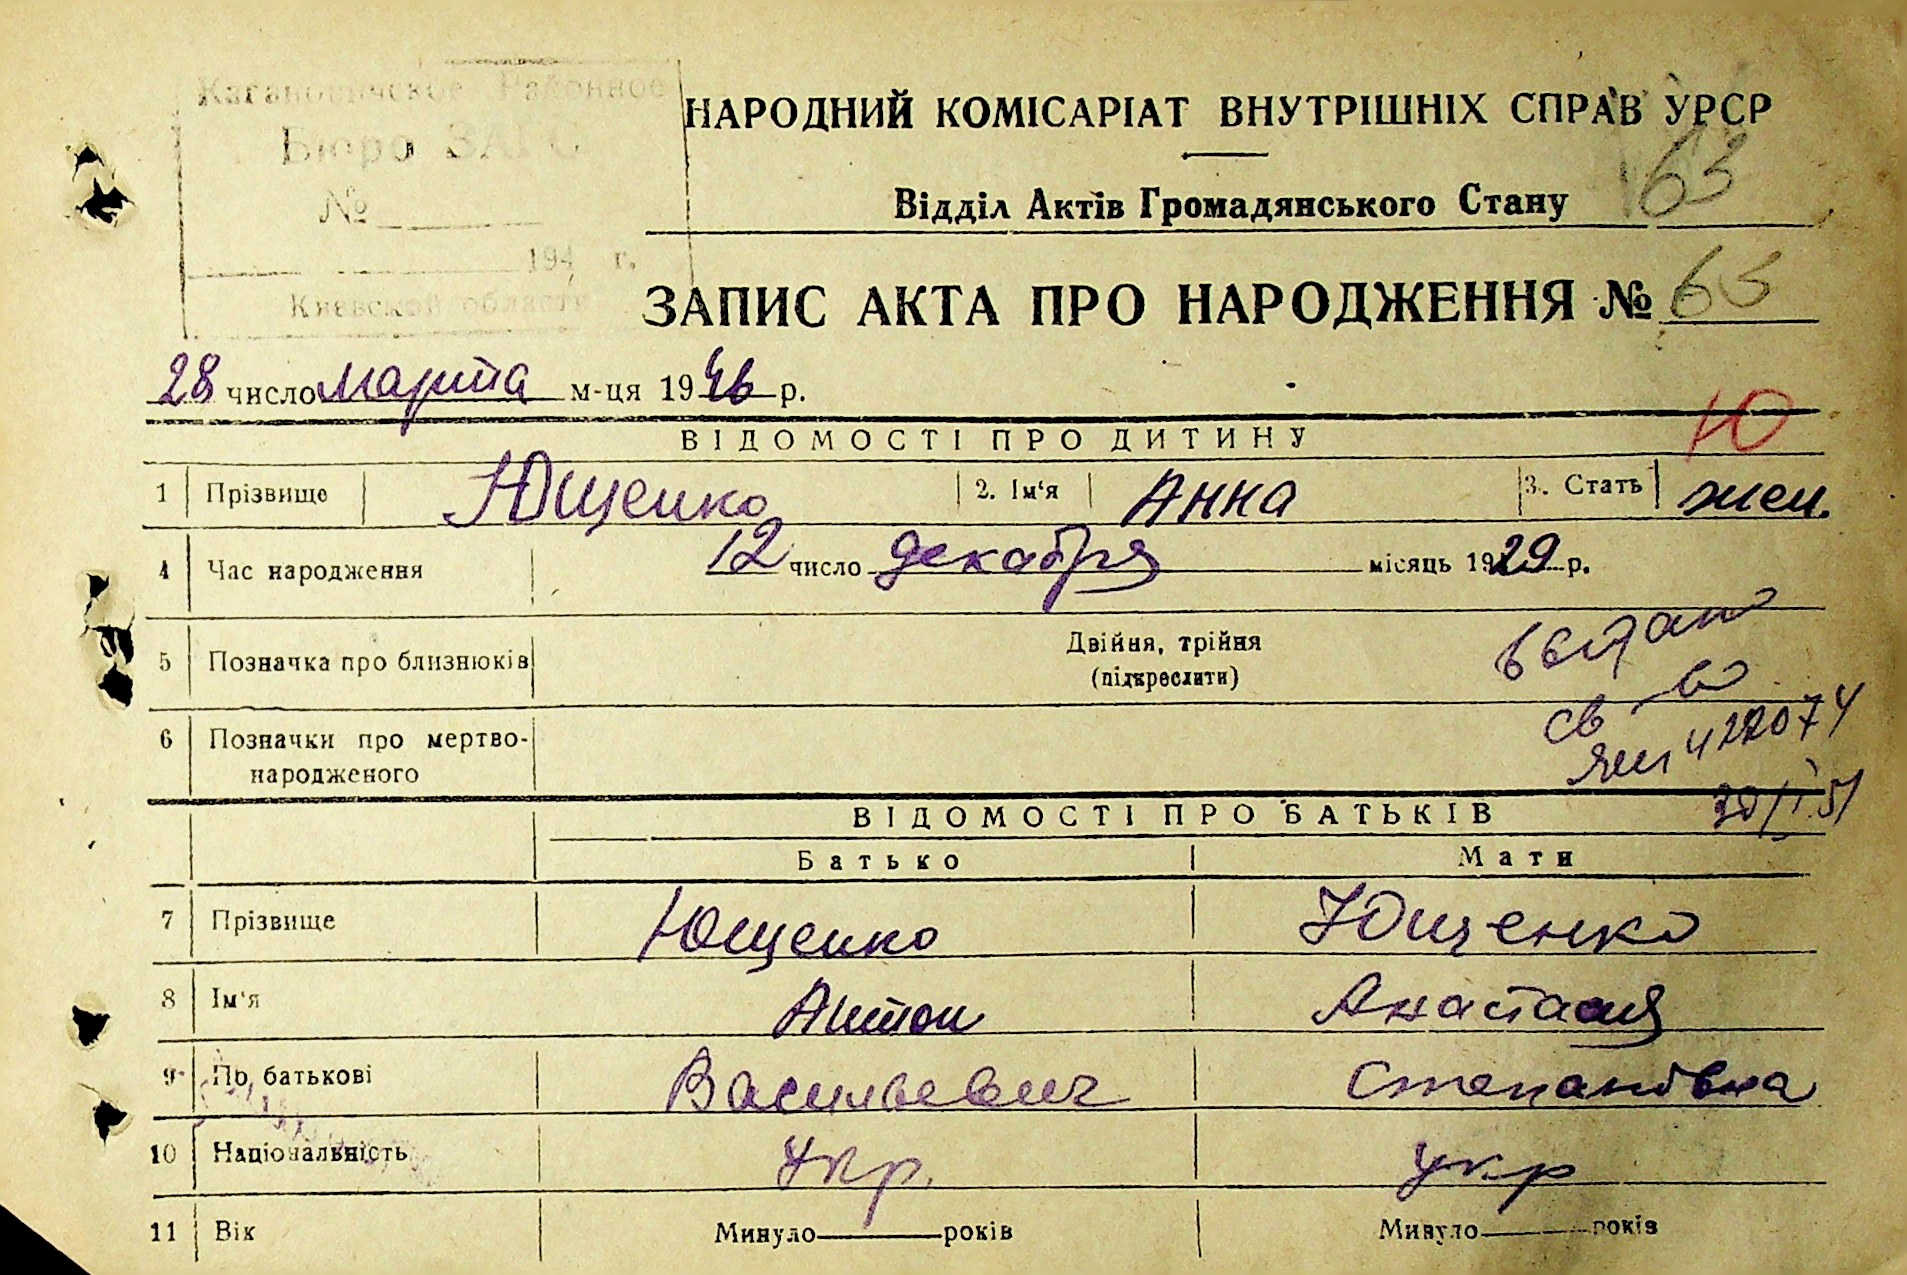 Кагановичское Районное
Бюро ЗАГС
№
194 г.
Киевской области
НАРОДНИЙ КОМІСАРІАТ ВНУТРІШНІХ СПРАВ УРСР
Відділ Актів Громадянського Стану 163
ЗАПИС АКТА ПРО НАРОДЖЕННЯ № 63
28 число марта м-ця 1946 р.
Ю
ВІДОМОСТІ ПРО ДИТИНУ
1 Прізвище Ющенко 2. Ім'я Анна 3. Стать жен.
4 Час народження 12 число декабря місяць 1929 р.
5 Позначка про близнюків Двійня, трійня
(підкреслити)
св-во
6 Позначки про мертво-
народженого
422074
ВІДОМОСТІ ПРО БАТЬКІВ
Батько Мати
7 Прізвище Ющенко Ющенко
8 Ім'я Антон Анастасия
9 По батькові Васильевич Степановна
10 Національність Укр. Укр
11 Вік Минуло років Минуло років